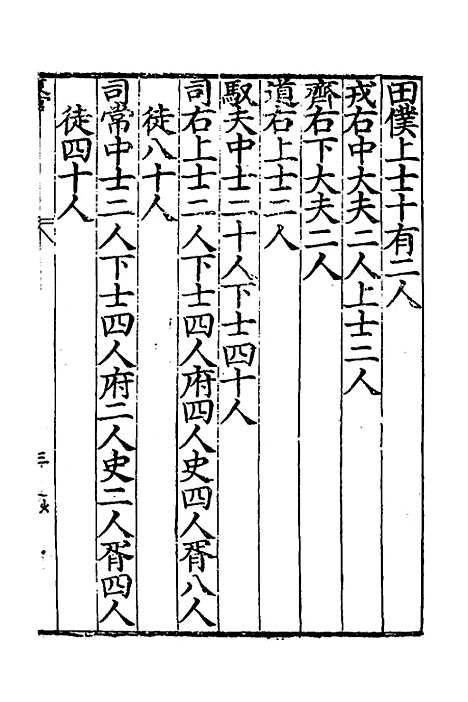 田僕上士十有二人
戎右中大夫二人上士二人
齊右下大夫二人
道右上士二人
馭夫中士二十人下士四十人
司右上士二人下士四人府四人史四人胥八人
徒八十人
司常中士二人下士四人府二人史二人胥四人
徒四十人